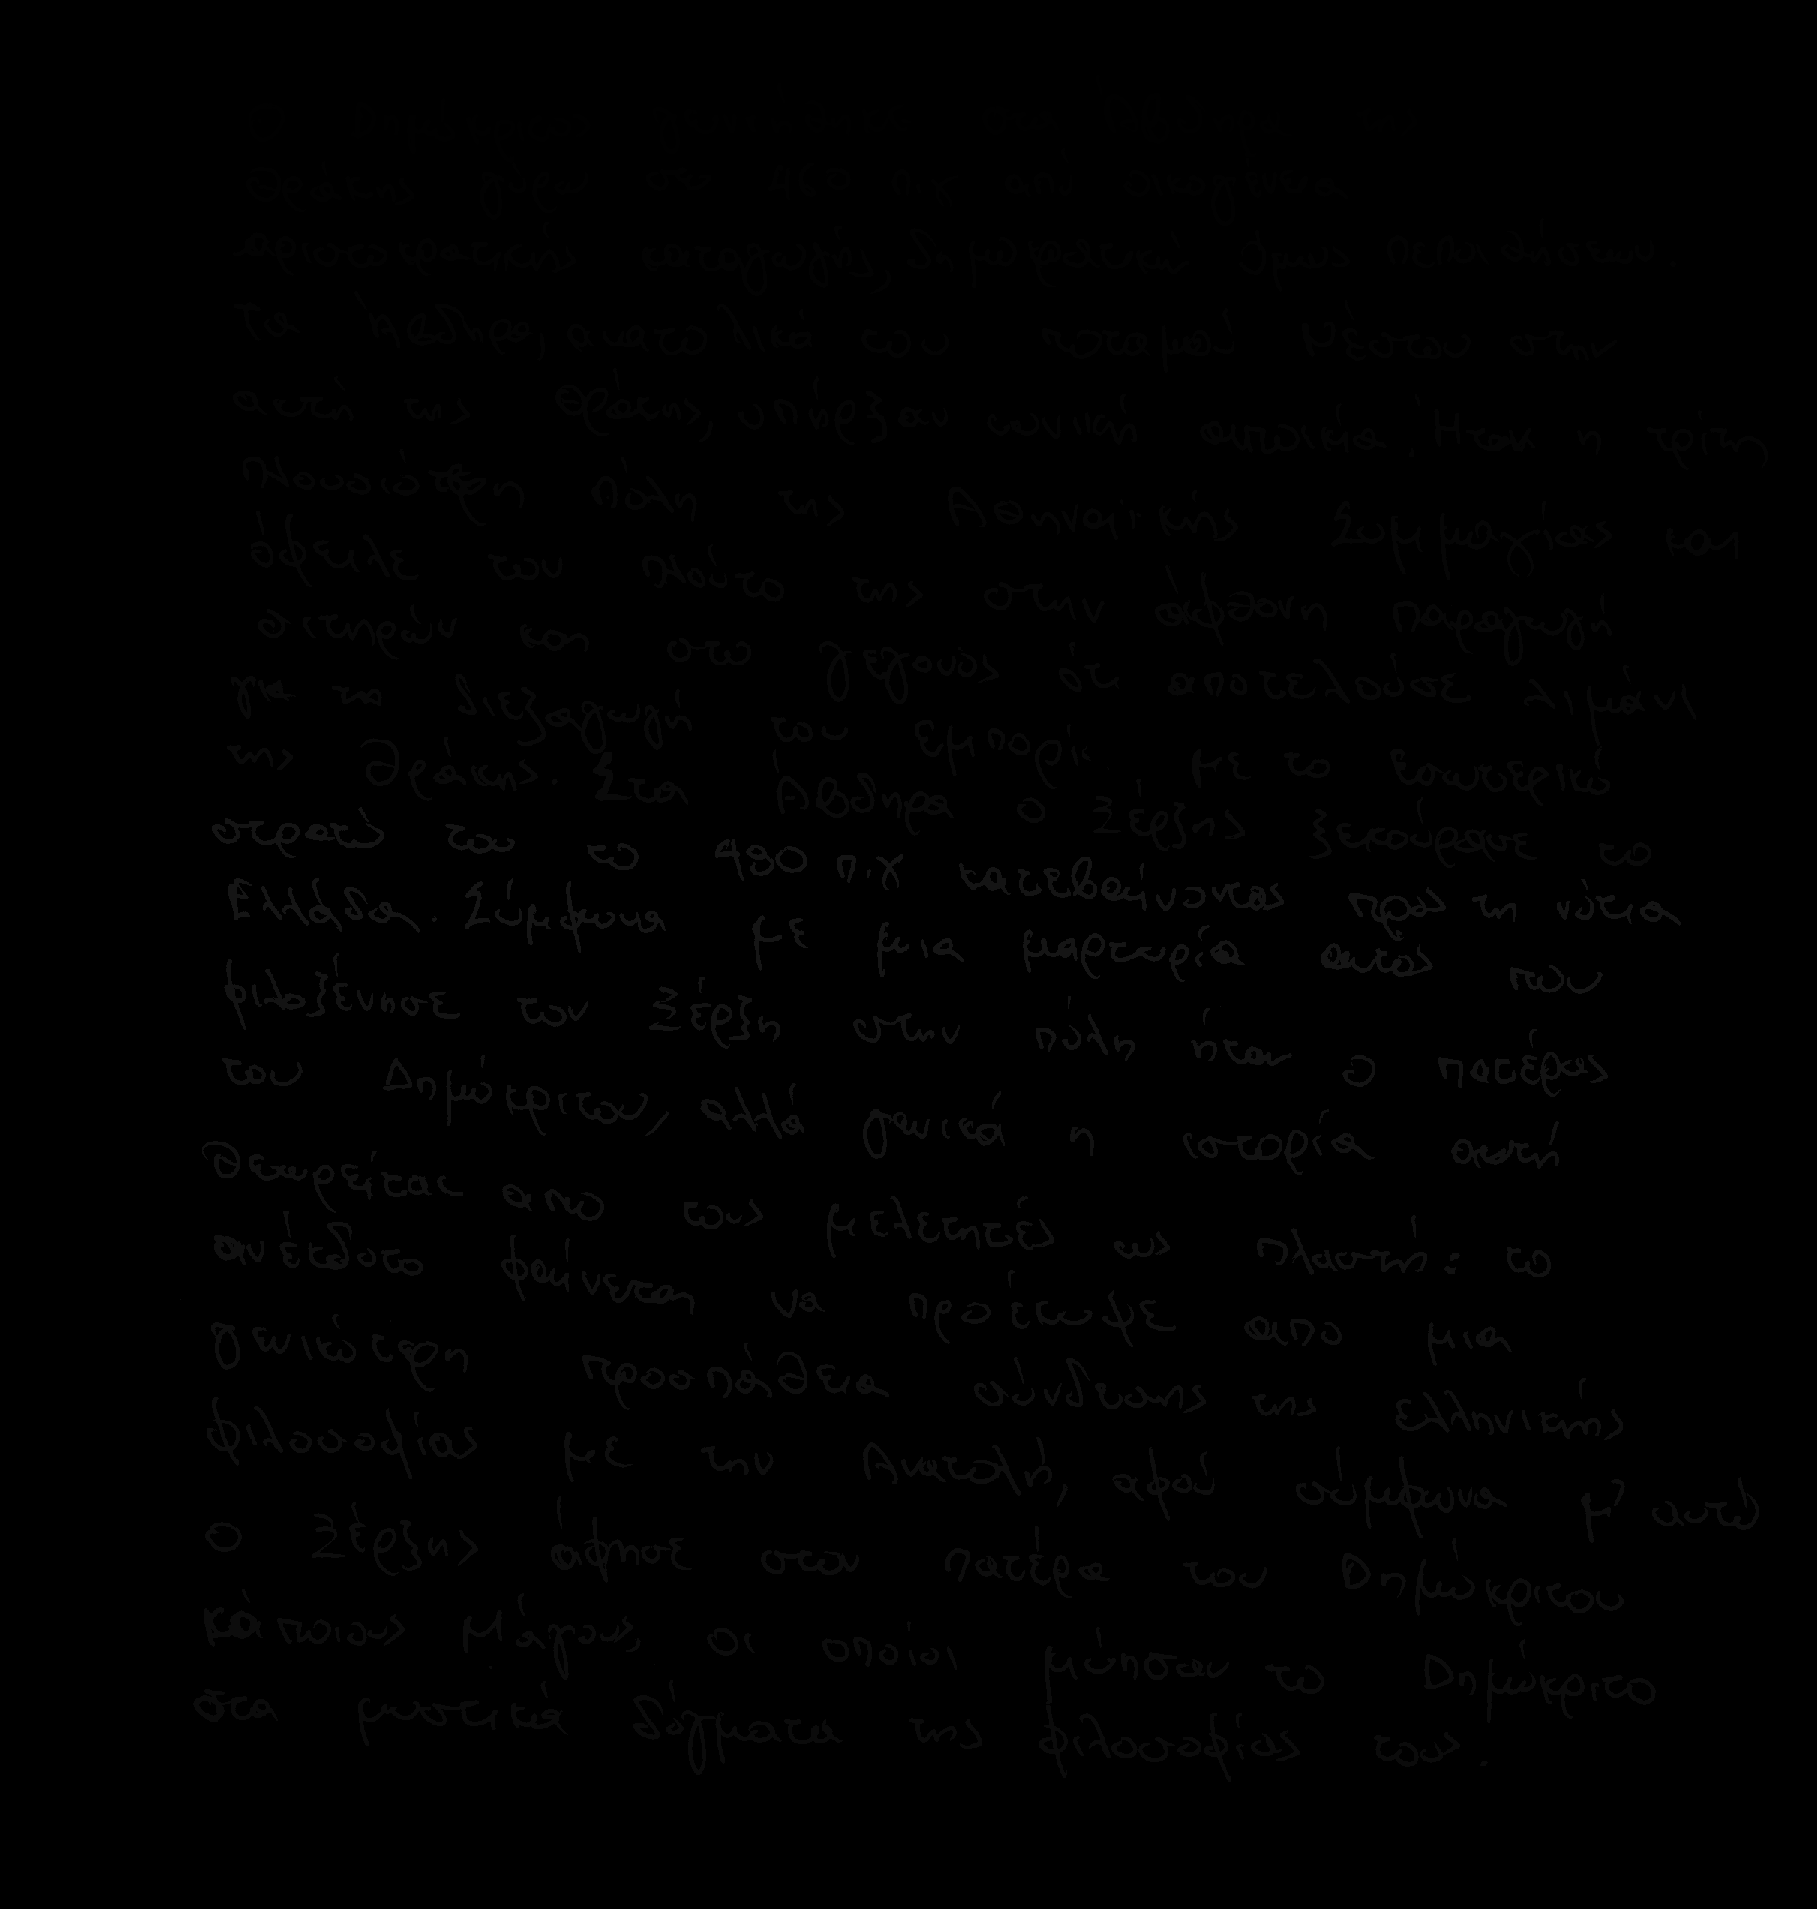 Ο Δημόκριτος γεννήθηκε στα Άβδηρα της
Θράκης γύρω σε 460 π.χ από οικογένεια
αριστοκρατικής καταγωγής, δημοκρατικών όμως πεποιθήσεων.
Τα Άβδηρα, ανατολικά του ποταμού Νέστου στην
ακτή της Θράκης, υπήρξαν ιωνική αποικία. Ήταν η τρίτη
πλουσιότερη πόλη της Αθηναϊκής Συμμαχίας και
όφειλε τον πλούτο της στην άφθονη παραγωγή
σιτηρών και στο γεγονός ότι αποτελούσε λιμάνι
για τη διεξαγωγή του εμπορίου με το εσωτερικό
της Θράκης. Στα Άβδηρα ο Ξέρξης ξεκούρασε το
στρατό του το 480 π.χ κατεβαίνοντας προς τη νότια
Ελλάδα. Σύμφωνα με μια μαρτυρία αυτός που
φιλοξένησε τον Ξέρξη στην πόλη ήταν ο πατέρας
του Δημόκριτου, αλλά γενικά η ιστορία αυτή
θεωρείται απο τους μελετητές ως πλαστή: το
ανέκδοτο φαίνεται να προέκυψε απο μια
γενικότερη προσπάθεια σύνδεσης της ελληνικής
φιλοσοφίας με την Ανατολή, αφού σύμφωνα μ' αυτό
ο Ξέρξης άφησε στον πατέρα του Δημόκριτου
κάποιους Μάγους, οι οποίοι μύησαν το Δημόκριτο
στα μυστικά δόγματα της φιλοσοφίας τους.